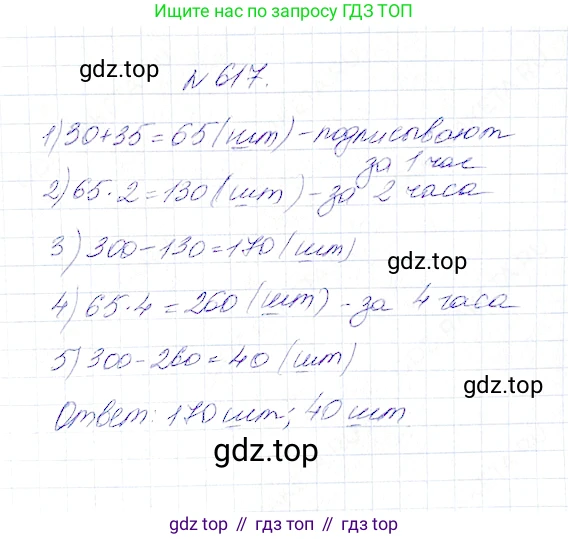 Ищите нас по запросу ГДЗ ТОП
gdz.top
№ 617.
1) 30+35=65 (шт) - подписывают
за 1 час
2) 65·2=130 (шт) - за 2 часа
3) 300-130=170 (шт)
gdz.top
4) 65·4=260 (шт) - за 4 часа
5) 300-260=40 (шт)
gdz.top
Ответ: 170 шт; 40 шт.
gdz.top
gdz top // гдз топ // гдз.top